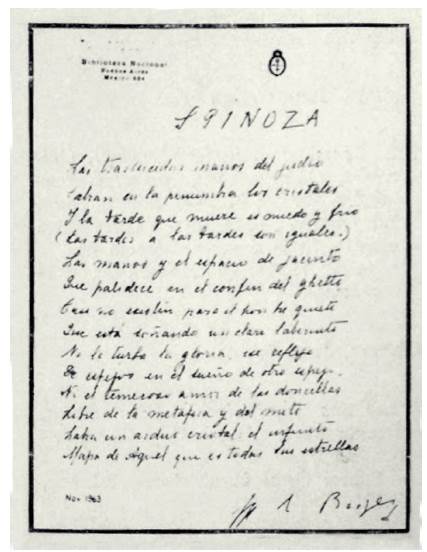 Biblioteca Nacional
Buenos Aires
México 564
SPINOZA
Las traslúcidas manos del judío
Labran en la penumbra los cristales
Y la tarde que muere es miedo y frío
(Las tardes a las tardes son iguales.)
Las manos y el espacio de jacinto
Que palidece en el confín del ghetto
Casi no existen para el hombre quieto
Que está soñando un claro laberinto
No lo turba la gloria, ese reflejo
De espejos en el sueño de otro espejo,
Ni el temeroso amor de las doncellas
Libre de la metáfora y del mito
Labra un arduo cristal: el infinito
Mapa de Aquel que es todas Sus estrellas
Nov 1963
Borges